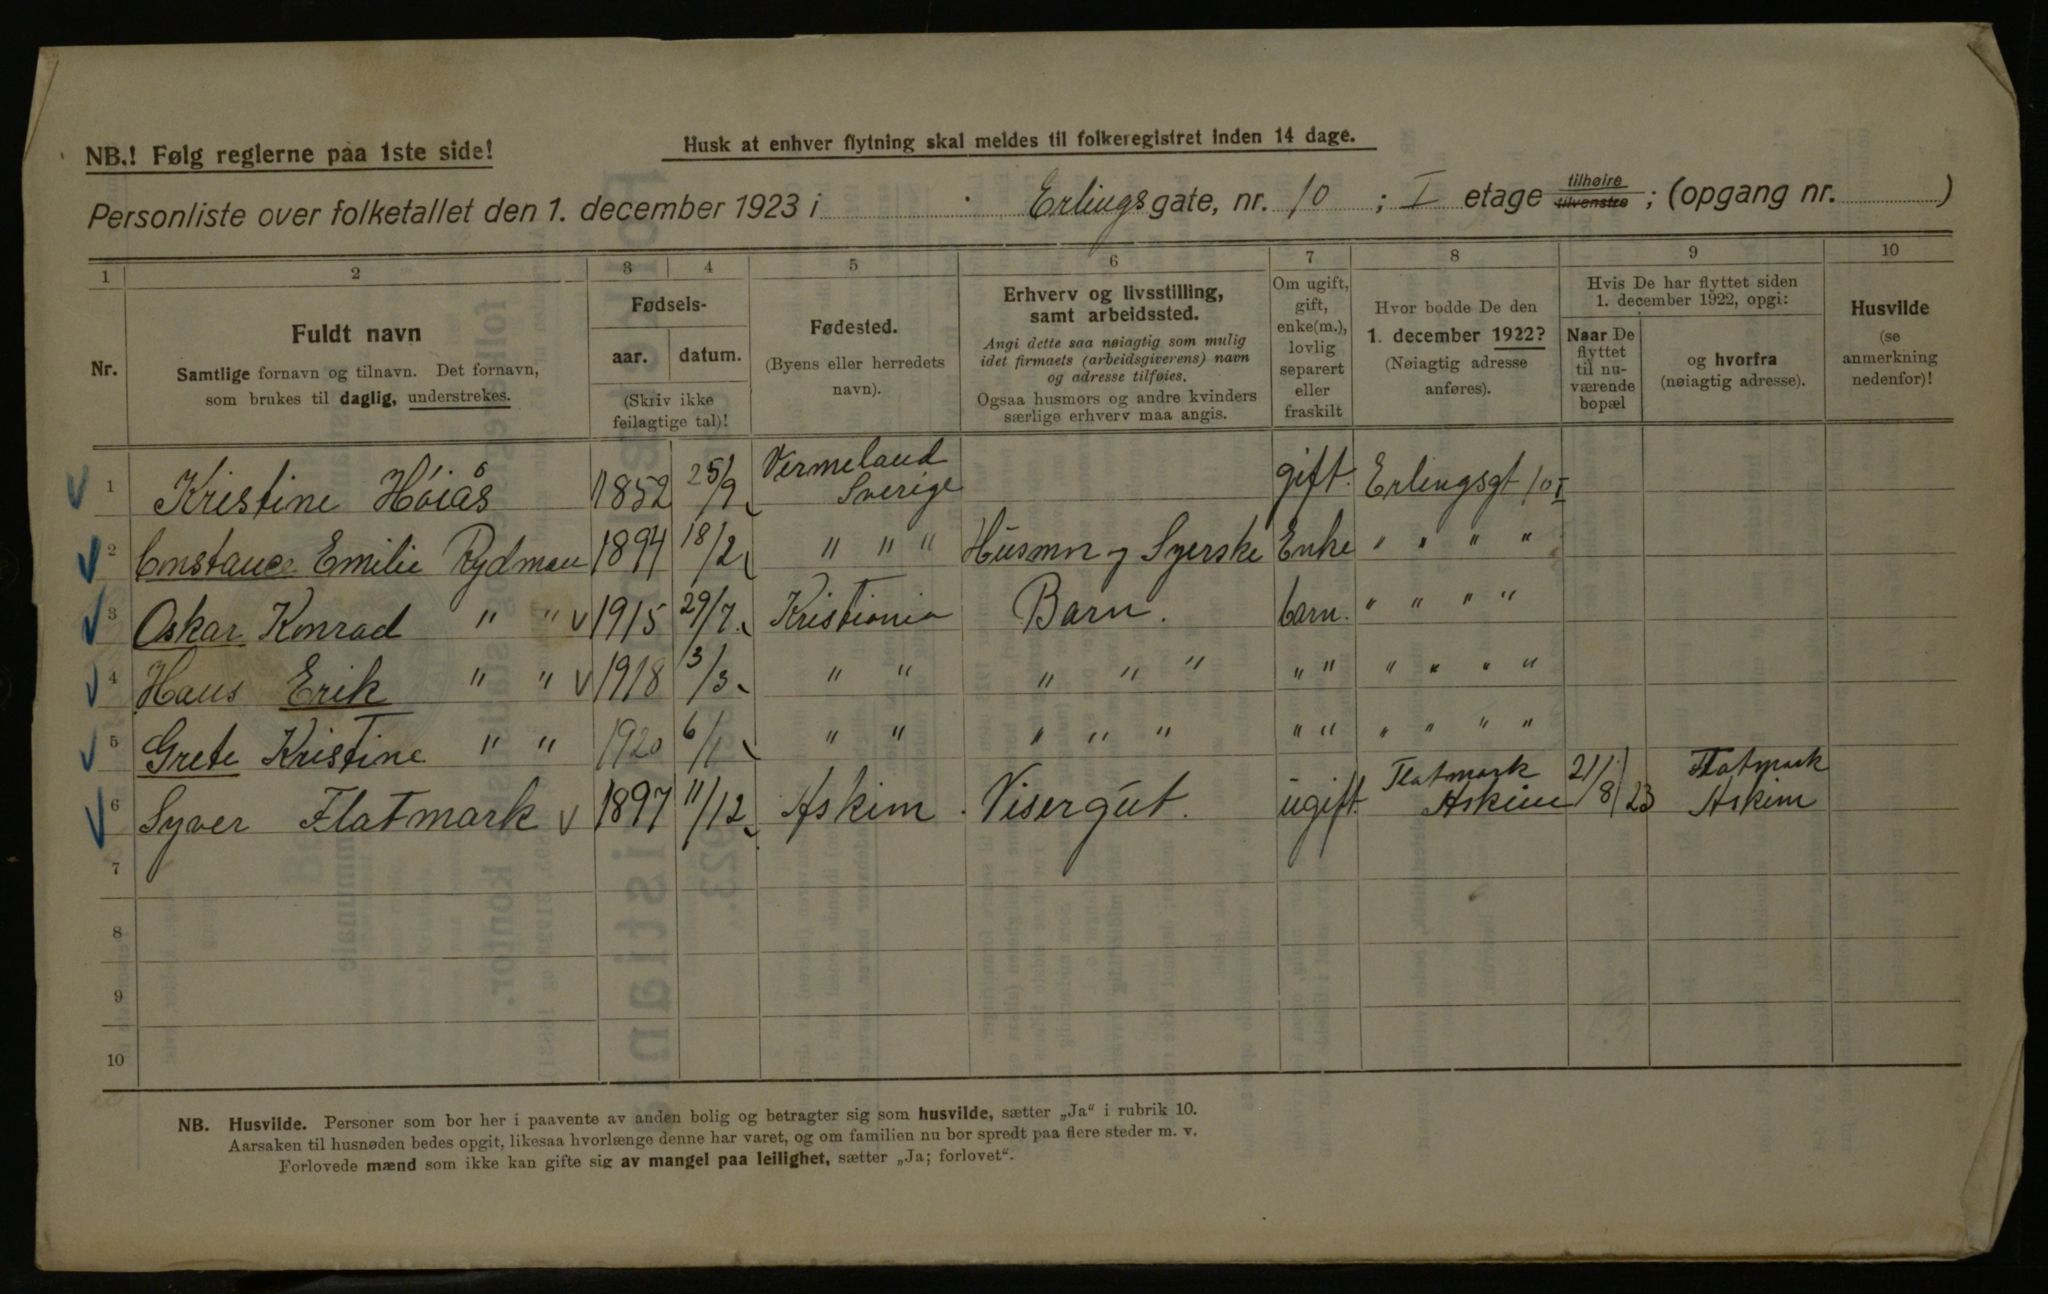 NB.! Følg reglerne paa 1ste side!
Husk at enhver flytning skal meldes til folkeregistret inden 14 dage.
Personliste over folketallet den 1. december 1923 i Erlingsgate, nr. 10 ; I etage tilhøire tilvenstre ; (opgang nr. )
1 2 3 4 5 6 7 8 9 10
Nr.
Fuldt navn
Samtlige fornavn og tilnavn. Det fornavn,
som brukes til daglig, understrekes.
Fødsels-
aar. datum.
(Skriv ikke
feilagtige tal)!
Fødested.
(Byens eller herredets
navn).
Erhverv og livsstilling,
samt arbeidssted.
Angi dette saa nøiagtig som mulig
idet firmaets (arbeidsgiverens) navn
og adresse tilføies.
Ogsaa husmors og andre kvinders
særlige erhverv maa angis.
Om ugift,
gift,
enke(m.),
lovlig
separert
eller
fraskilt
Hvor bodde De den
1. december 1922?
(Nøiagtig adresse
anføres).
Hvis De har flyttet siden
1. december 1922, opgi:
Naar De
flyttet
til nu-
værende
bopæl
og hvorfra
(nøiagtig adresse).
Husvilde
(se
anmerkning
nedenfor)!
1 Kristine Høiås 1852 25/9 Vermeland Sverige gift. Erlingsgt 10 I
2 Constance Emilie Rydman 1894 18/2 " " " Husmor og Syerske Enke " " " "
3 Oskar Konrad " " 1915 29/7 Kristiania Barn. barn. " " " "
4 Hans Erik " " 1918 3/3 " " " " " " " " " " "
5 Grete Kristine " " 1920 6/1 " " " " " " " " " " "
6 Syver Flatmark 1897 11/12 Askim Visergut. ugift. Flatmark Askim 21/8 23 Flatmark Askim
7
8
9
10
NB. Husvilde. Personer som bor her i paavente av anden bolig og betragter sig som husvilde, sætter „Ja“ i rubrik 10.
Aarsaken til husnøden bedes opgit, likesaa hvorlænge denne har varet, og om familien nu bor spredt paa flere steder m. v.
Forlovede mænd som ikke kan gifte sig av mangel paa leilighet, sætter „Ja; forlovet“.